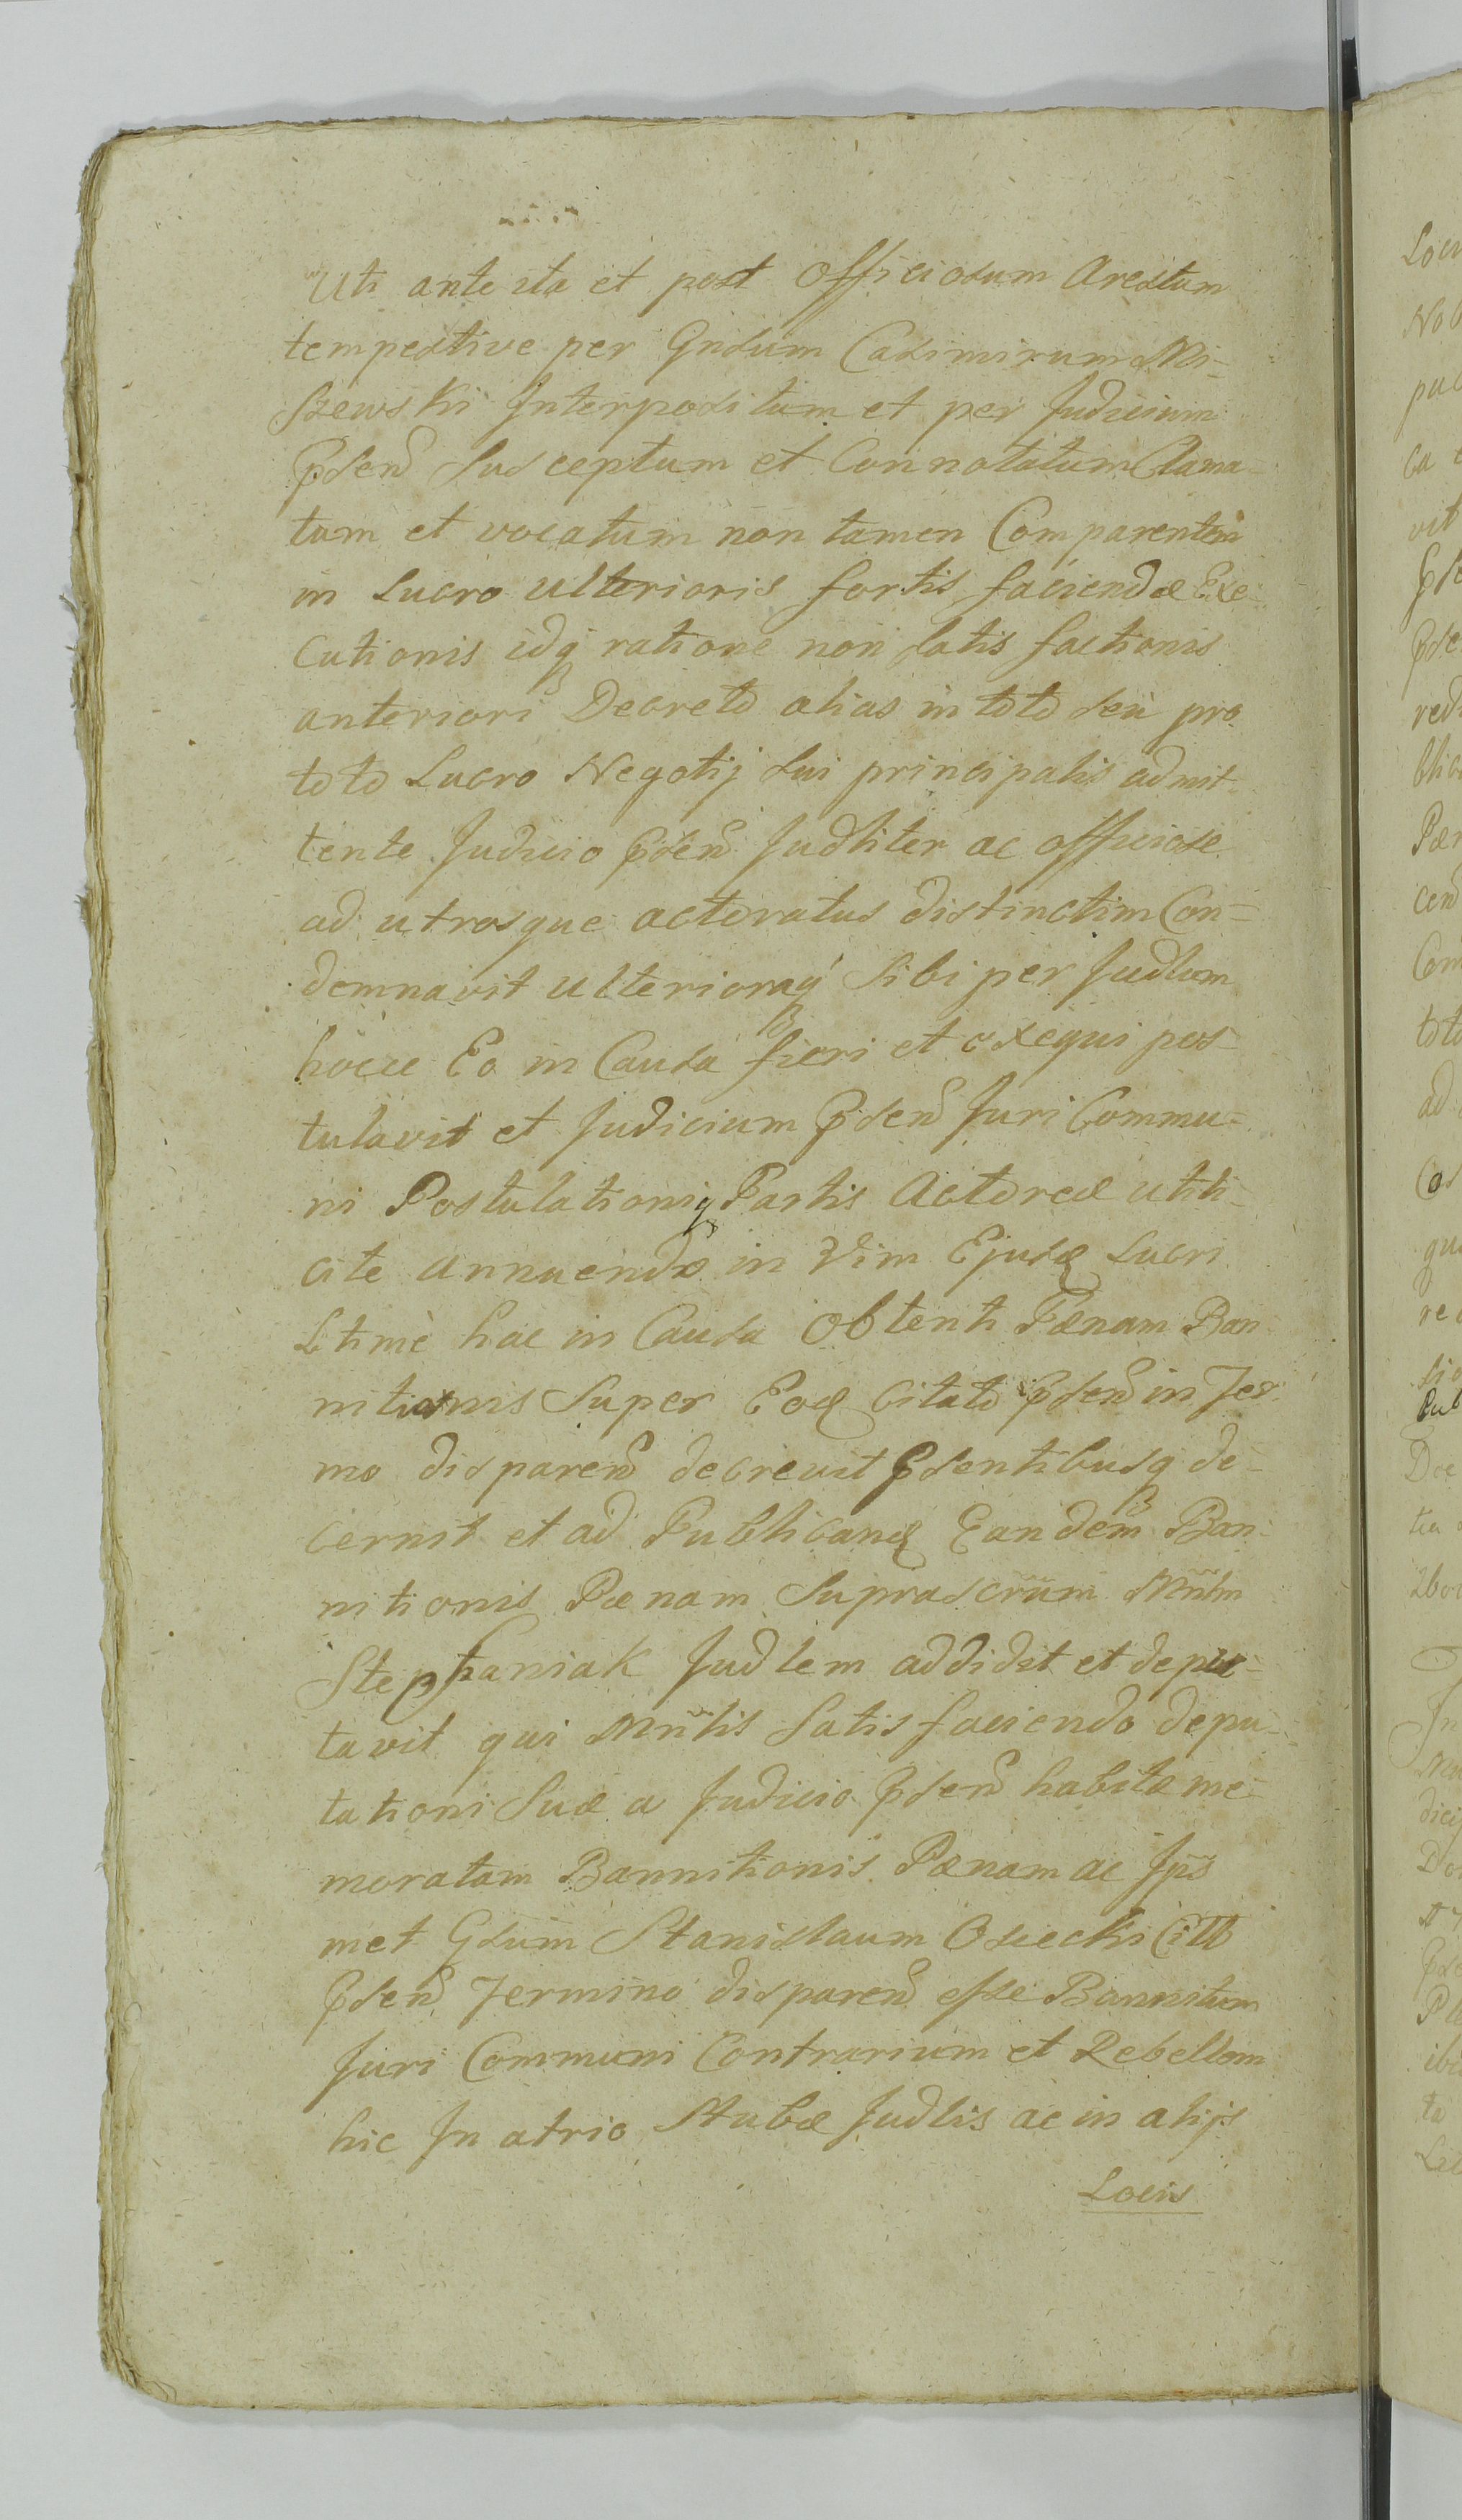 Uti ante ita et post officiosum Arestum
tempestive per Gnsum Casimirum Mi-
szewski Interpositum et per Judicium
Pnsens Susceptum et Connotatum Clama-
tum et vocatum non tamen Comparentem
in Lucro ulterioris fortis faciendæ Exe-
cutionis idq ratione non satis factionis
anteriori Decreto alias in toto seu pro
toto Lucro Negotij sui principalis admit-
tente Judicio Pnsen Judliter ac officiose
ad utrosque actoratus distinctim Con-
demnavit ulterioraq Sibi per Judium
hocce Eo in Causa fieri et exequi pos-
tulavit et Judicium Pnsen Juri Commu-
ni Postulationiq Partis Actoreæ utili-
cite annuendo in Vim Ejusd Lucri
Ltimè hac in Causa Obtenti Pænam Ban
nitionis Super Eod Citato Pnsen in Ter
mo disparen decrevit Pnsentibusq de-
cernit et ad Publicand Eandem Ban-
nitionis Pænam Suprascrum Mnlm
Stephaniak Judlem addidit et depu-
tavit qui Mnlis Satis faciendo depu-
tationi Suæ a Judicio Pnsen habitæ me-
moratam Bannitionis Pænam ac Jps
met Gsum Stanislaum Osiecki Citt
Pnsen Termino disparen esse Bannitum
Juri Communi Contrarium et Rebellem
hic In atrio Stubæ Judlis ac in alijs
Locis